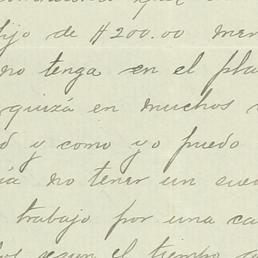 fijo de $200.00 men
no tenga en el pla
quizá en muchos
y como yo puedo
no tener un sue
trabajo por una ca
el tiempo